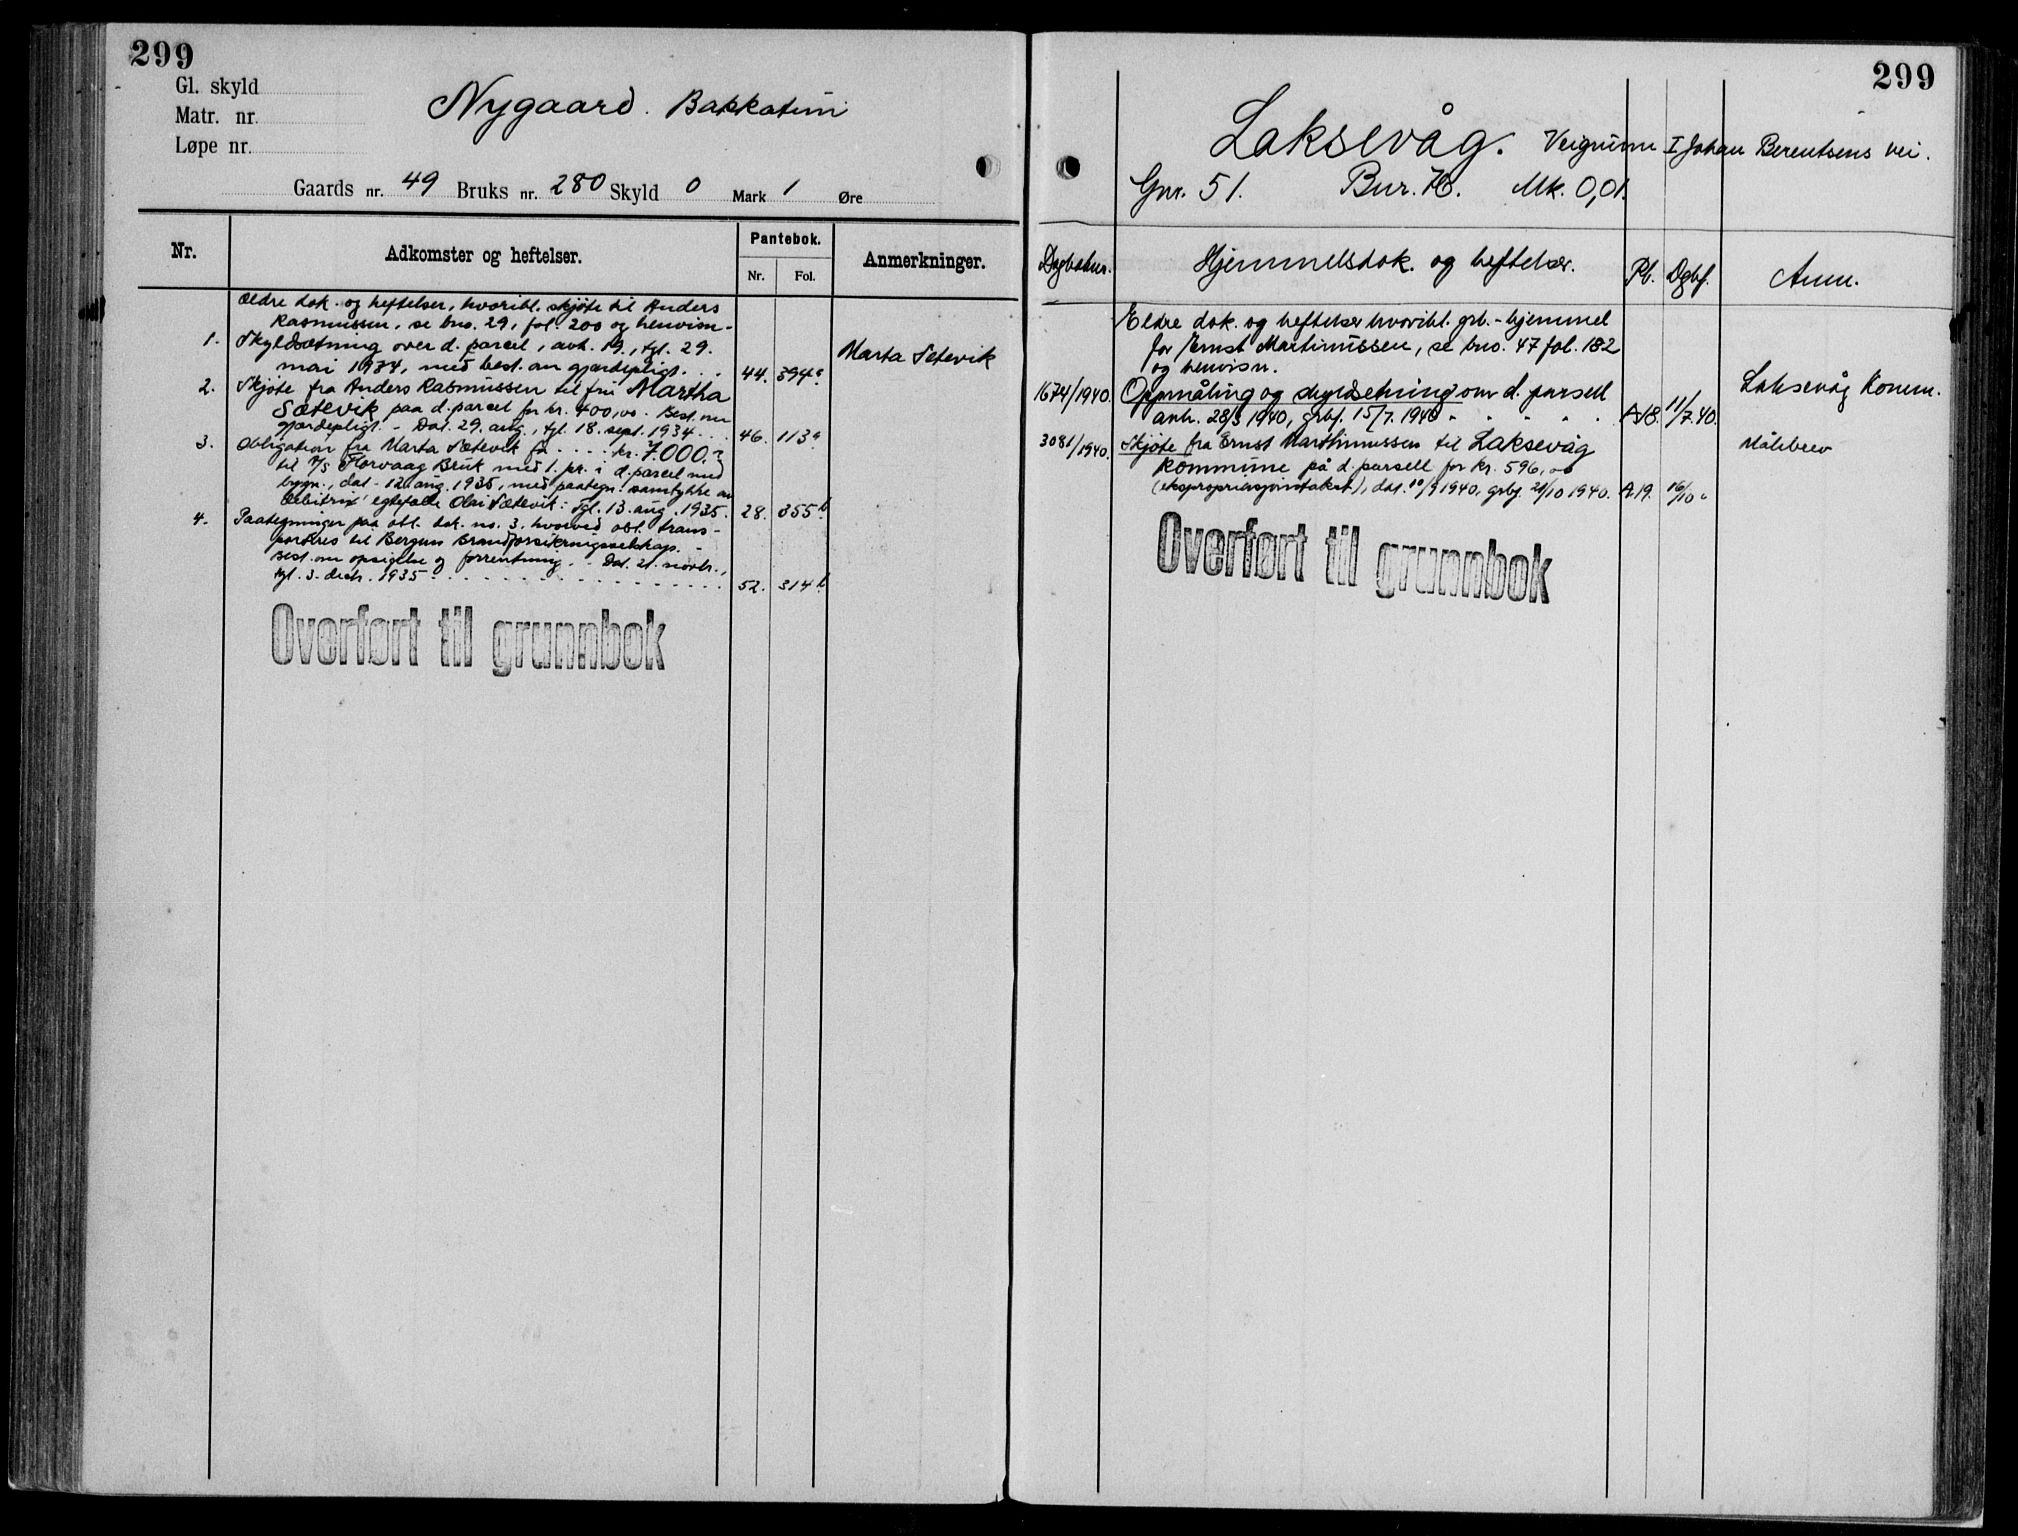 299
Gl. skyld
Matr. nr.
Løpe nr.
Nygaard. Bakkatun
Gaards nr. 49 Bruks nr. 280 Skyld 0 Mark 1 Øre
Nr. Adkomster og heftelser. Pantebok. Anmerkninger.
Nr. Fol.
Ældre dok. og heftelser, hvoribl. skjøte til Anders
Rasmussen, se bno. 29, fol. 200 og henvisn-
1. Skyldsætning over d. parcel, avh. 19., tgl. 29.
mai 1934, med best. om gjærdepligt. . . 44. 394a. Marta Setevik
2. Skjøte fra Anders Rasmussen til fru Martha
Sætevik paa d. parcel for kr. 400,00. Best. om
gjærdepligt. - Dat. 29. aug., tgl. 18. sept. 1934 . . . 46. 113a
3. Obligation fra Marta Sætevik for . . . . kr. 7.000.-
til A/S Florvaag Bruk med 1. pr. i d. parcel med
bygn., dat. 12. aug. 1935, med paategn. samtykke av
debitrix' egtefælle Olai Sætevik: Tgl. 13. aug. 1935. 28. 355b
4. Paategninger paa obl. dok. no. 3. hvorved obl. trans-
porteres til Bergens Brandforsikringsselskap. -
Best. om opsigelse og forrentning. . Dat. 21. novbr.,
tgl. 3. decbr. 1935 . . . . 52. 314b
Overført til grunnbok
299
Laksevåg. Veigrunn I Johan Berentsens vei.
Gnr. 51. Bnr. 76. Mk. 0,01.
Dagboknr. Hjemmelsdok. og heftelser. Pb. Dgbf. Anm.
Eldre dok. og heftelser hvoribl. grb.-hjemmel
for Ernst Martinussen, se bno. 47 fol. 182
og henvisn.
1674/1940. Oppmåling og skyldsetning om d. parsell Laksevåg Komm.
avh. 28/3 1940, grbf. 15/7. 1940 A 18. 11/7.40.
3081/1940. Skjøte fra Ernst Marthinussen til Laksevåg Målebrev
kommune på d. parsell for kr. 596,00
(ekspropriasjonstakst), dat. 10/9 1940, grbf. 21/10 1940. A 19. 16/10 "
Overført til grunnbok